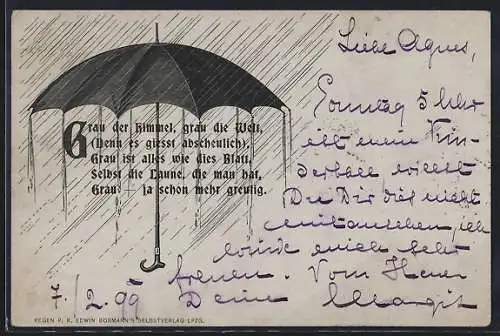 Liebe Agnes,
Grau der Himmel, grau die Welt,
(Denn es giesst abscheulich),
Grau ist alles wie dies Blatt,
Selbst die Laune, die man hat,
Grau — ja schon mehr greulig.
Sonntag 5 Uhr
ist mein Kin-
derball willst
Du Dir nicht
mitansehen, ich
würde mich sehr
freuen. Vom
Deine Margit
7./2.99
REGEN P. K. EDWIN BORMANN'S SELBSTVERLAG-LPZG.